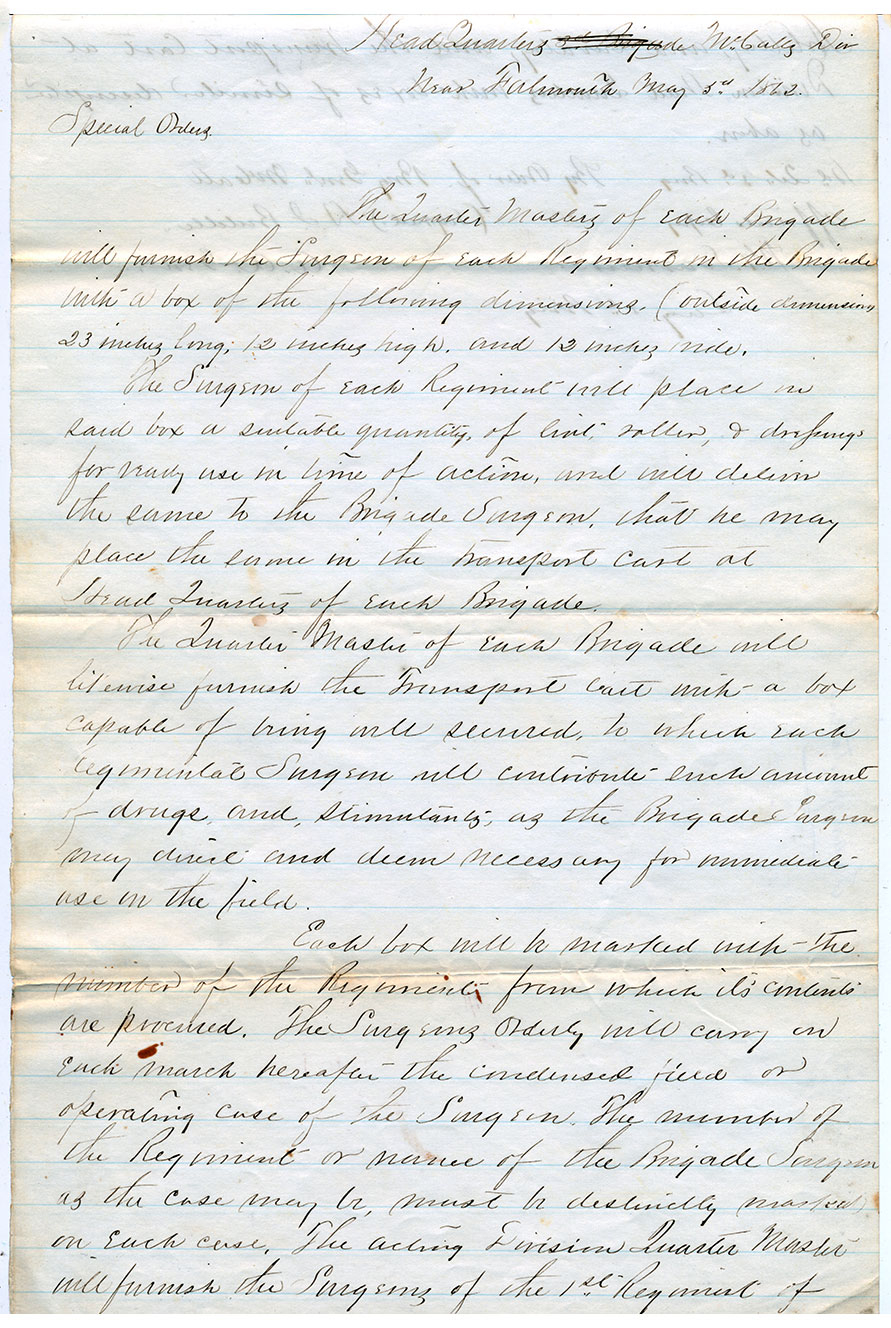 Head Quarters 3d Brigade McCalls Div
Near Falmouth May 3d 1862.
Special Orders.
The Quarter Masters of each Brigade
will furnish the Surgeon of each Regiment in the Brigade
with a box of the following dimensions. (outside dimensions
23 inches long, 12 inches high. and 12 inches wide.
The Surgeon of each Regiment will place in
said box a suitable quantity, of lint, roller, & dressings
for ready use in time of action, and will deliver
the same to the Brigade Surgeon, that he may
place the same in the transport cart at
Head Quarters of each Brigade.
The Quarter Master of each Brigade will
likewise furnish the Transport Cart with a box
capable of being well secured, to which each
regimental Surgeon will contribute such amount
of drugs, and, stimulants, as the Brigade Surgeon
may direct and deem necessary for immediate
use in the field.
Each box will be marked with the
number of the Regiment from which its contents
are procured. The Surgeons Orderly will carry on
each march hereafter the condensed field or
operating case of the Surgeon. The number of
the Regiment or name of the Brigade Surgeon
as the case may be, must be distinctly marked
on each case. The acting Division Quarter Master
will furnish the Surgeons of the 1st Regiment of